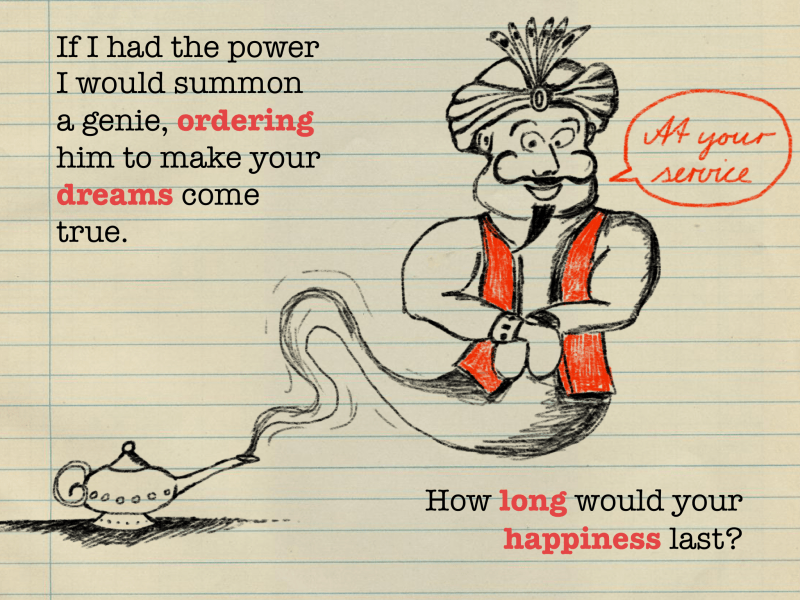 If I had the power
I would summon
a genie, ordering
him to make your
dreams come
true.
At your
service
How long would your
happiness last?